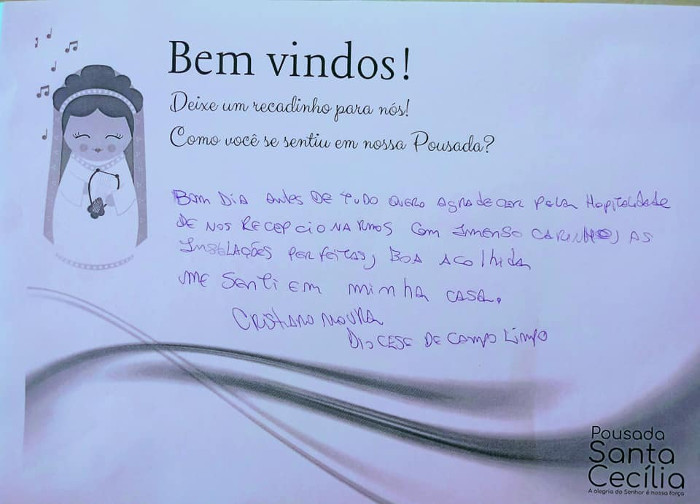 Bem vindos!
Deixe um recadinho para nós!
Como você se sentiu em nossa Pousada?
Bom Dia antes de tudo quero agradecer pela Hopitalidade
de nos recepcionarmos com imenso carinho, as
Instalações perfeitas, boa acolhida
me senti em minha casa.
Cristiano Moura
Diocese de Campo Limpo
Pousada
Santa
Cecília
A alegria do Senhor é nossa força